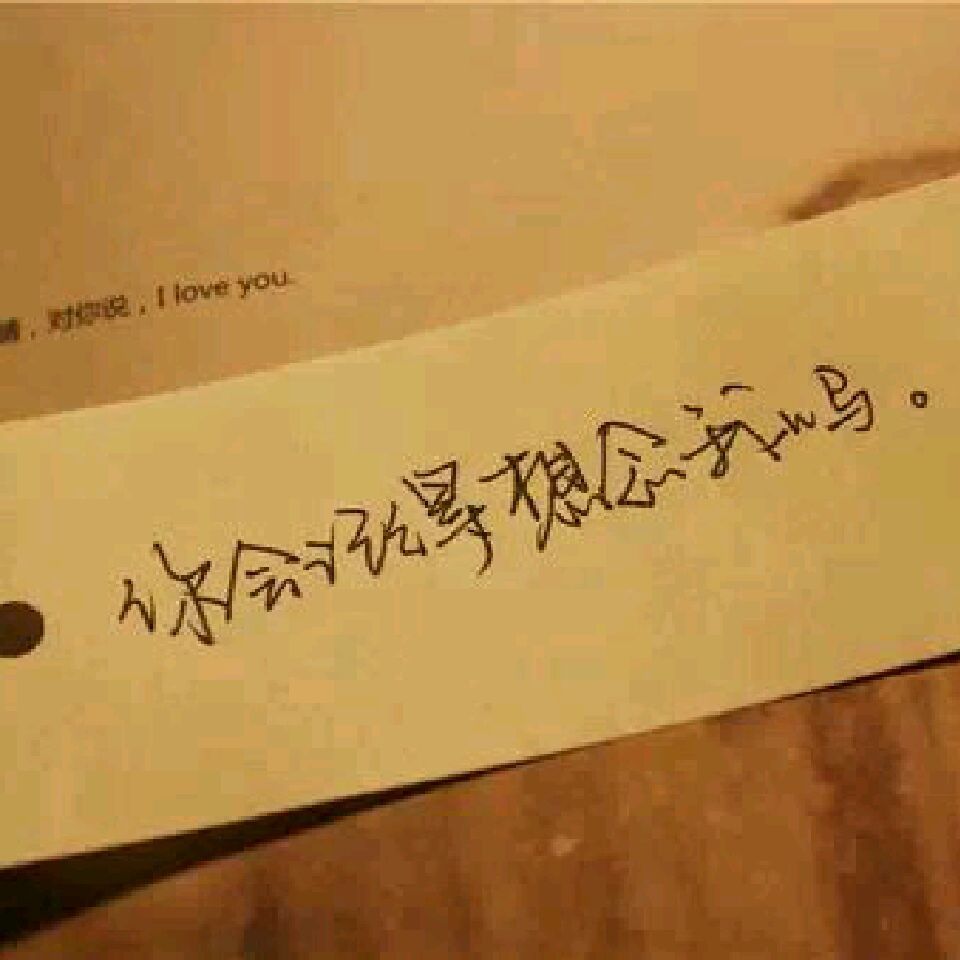 ，对你说，I love you.
你会经常想念我吗。